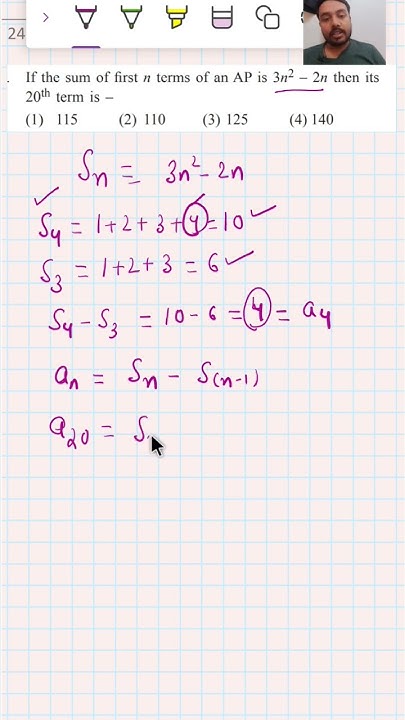 24
If the sum of first n terms of an AP is 3n² – 2n then its
20th term is –
(1) 115 (2) 110 (3) 125 (4) 140
Sn = 3n² – 2n
S4 = 1+2+3+4=10
S3 = 1+2+3 = 6
S4 – S3 = 10 – 6 = 4 = a4
an = Sn – S(n-1)
a20 = S